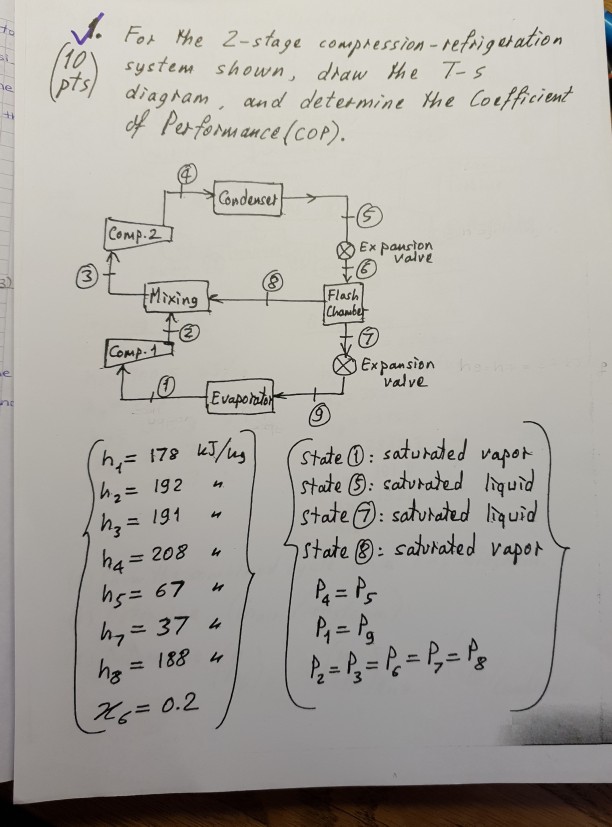 1. For the 2-stage compression-refrigeration
(10 pts)
system shown, draw the T-s
diagram, and determine the Coefficient
of Performance (COP).
④
Condenser
⑤
Comp.2
Expansion
valve
⑥
③
Mixing
⑧
Flash
Chamber
②
⑦
Comp.1
Expansion
valve
①
Evaporator
⑨
h₁ = 178 kJ/kg
h₂ = 192 "
h₃ = 191 "
h₄ = 208 "
h₅ = 67 "
h₇ = 37 "
h₈ = 188 "
x₆ = 0.2
State ①: saturated vapor
State ⑤: saturated liquid
State ⑦: saturated liquid
State ⑧: saturated vapor
P₄ = P₅
P₁ = P₉
P₂ = P₃ = P₆ = P₇ = P₈